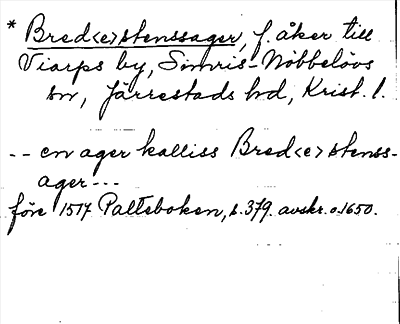 * Bred<e>stenssager, f. åker till
Viarps by, Simris-Nöbbelövs
sn, Järrestads hd, Krist. l.
-- en ager kalliss Bred<e>stenss-
ager---
före 1517 Palteboken, s. 379. avskr. o. 1650.